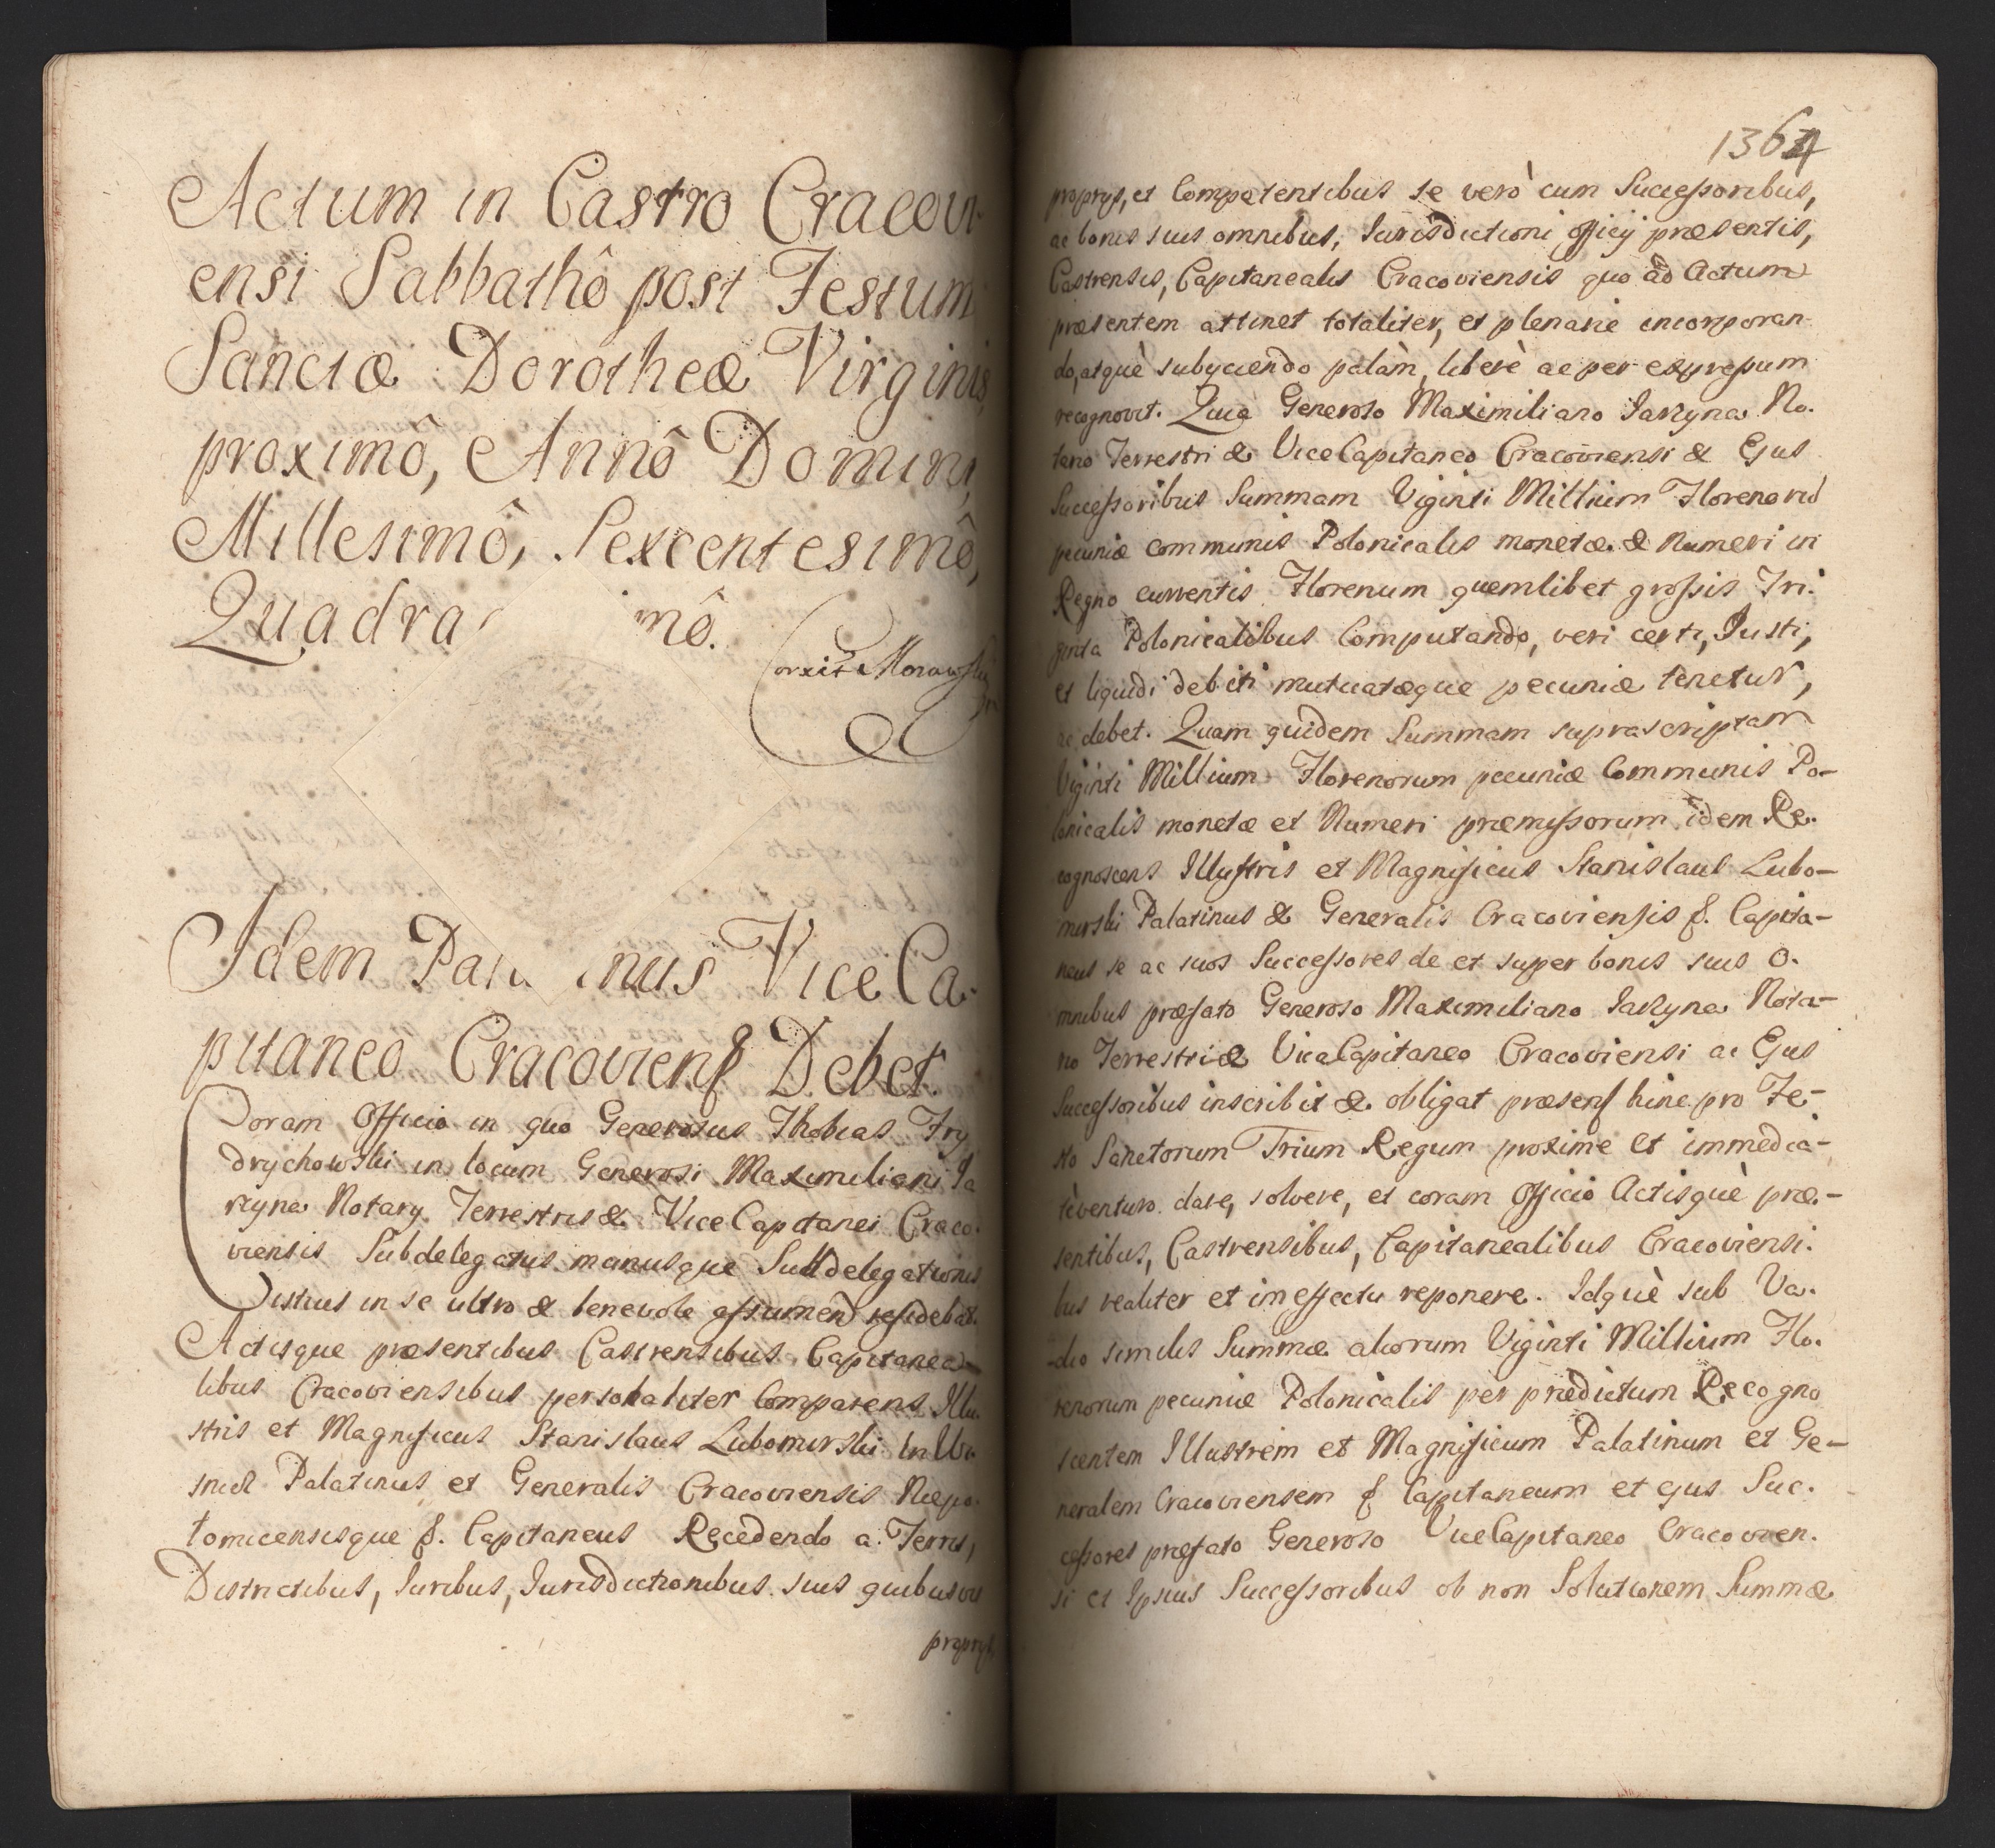 Actum in Castro Cracovi-
ensi Sabbathô post Festum
Sanctæ Dorotheæ Virginis
proximô, Annô Domini,
Millesimô, Sexcentesimô,
Quadra mô.
Idem Pa nus Vice Ca-
pitaneo Cracoviens Debet.
Coram Officio in quo Generosus Thobias Fry
drychowski in locum Generosi Maximiliani Ja
rzyna Notarÿ Terrestris & Vice Capitanei Craco-
viensis Subdelegatus manusque Subdelegationis
istius in se ultro & benevole assumen residebat.
Actisque præsentibus Castrensibus Capitanea-
libus Cracoviensibus personaliter Comparens Illu-
stris et Magnificus Stanislaus Lubomirski in Wi-
snicz Palatinus et Generalis Cracoviensis Niepo-
tomicensisque &. Capitaneus Recedendo a Terris,
Districtibus, Juribus, Jurisdictionibus suis quibusvis
proprÿs
1364
proprÿs, et Competentibus se verò cum Successoribus,
ac bonis suis omnibus, Jurisdictioni officÿ præsentis,
Castrensis, Capitanealis Cracoviensis quo ad Actum
præsentem attinet totaliter, et plenarie incorporan-
do, atquè subÿciendo palàm, liberè ac per expressum
recognovit. Quia Generoso Maximiliano Jarzyna No-
tario Terrestri & Vice Capitaneo Cracoviensi & Ejus
Successoribus Summam Viginti Millium Florenorum
pecuniæ communis Polonicalis monetæ & Numeri in
Regno currentis Florenum quemlibet grossis Tri-
ginta Polonicalibus Computando, veri certi, Justi,
et liquidi debiti mutuatæque pecuniæ tenetur,
ac debet. Quam quidem Summam suprascriptam
Viginti Millium Florenorum pecuniæ Communis Po-
lonicalis monetæ et Numeri præmissorum idem Re-
cognoscens Illustris et Magnificus Stanislaus Lubo-
mirski Palatinus & Generalis Cracoviensis &. Capita-
neus se ac suos Successores de et super bonis suis o-
mnibus præfato Generoso Maximiliano Jarzyna Nota-
rio Terrestri & Vice Capitaneo Cracoviensi ac Ejus
Successoribus inscribit & obligat præsens hinc pro Fe-
sto Sanctorum Trium Regum proxime et immedia-
tè venturo dare, solvere, et coram Officio Actisquè præ-
sentibus, Castrensibus, Capitanealibus Cracoviensi-
bus realiter et in effectu reponere. Idquè sub Va-
dio similis Summæ aliorum Viginti Millium Flo-
renorum pecuniæ Polonicalis per prædictum Recogno
scentem Illustrem et Magnificum Palatinum et Ge-
neralem Cracoviensem & Capitaneum et ejus Suc-
cessores præfato Generoso Vice Capitaneo Cracovien-
si et Ipsius Successoribus ob non Solutionem Summæ